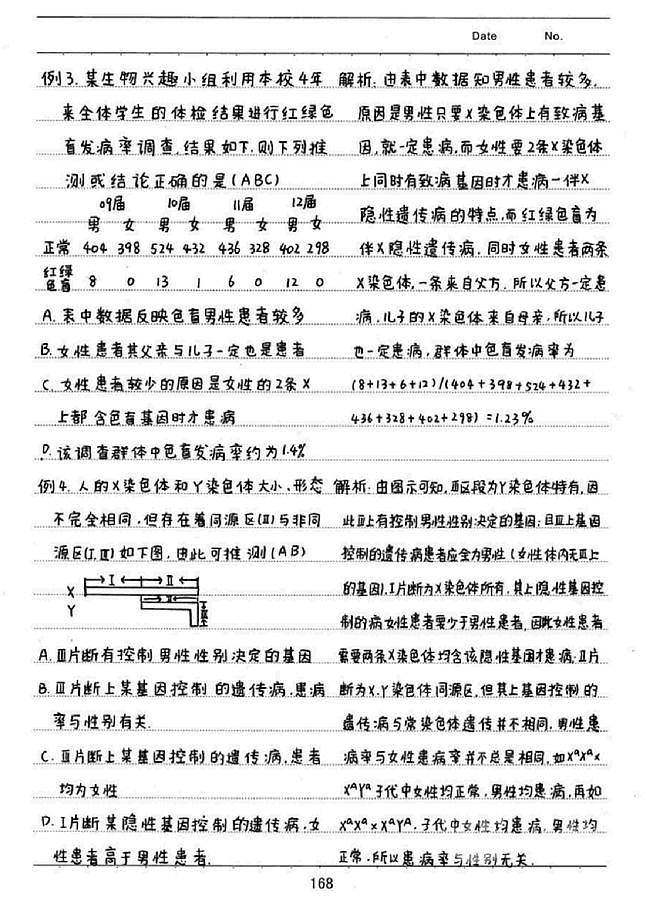 Date No.
例3.某生物兴趣小组利用本校4年
来全体学生的体检结果进行红绿色
盲发病率调查.结果如下.则下列推
测或结论正确的是(ABC)
09届 10届 11届 12届
男 女 男 女 男 女 男 女
正常 404 398 524 432 436 328 402 298
红绿色盲 8 0 13 1 6 0 12 0
A.表中数据反映色盲男性患者较多
B.女性患者其父亲与儿子一定也是患者
C.女性患者较少的原因是女性的2条X
上都含色盲基因时才患病
D.该调查群体中色盲发病率约为1.4%
解析:由表中数据知男性患者较多,
原因是男性只要X染色体上有致病基
因,就一定患病.而女性要2条X染色体
上同时有致病基因时才患病—伴X
隐性遗传病的特点.而红绿色盲为
伴X隐性遗传病.同时女性患者两条
X染色体,一条来自父方.所以父方一定患
病.儿子的X染色体来自母亲,所以儿子
也一定患病,群体中色盲发病率为
(8+13+6+12)/(404+398+524+432+
436+328+402+298)=1.23%
例4.人的X染色体和Y染色体大小、形态
不完全相同.但存在着同源区(Ⅱ)与非同
源区(Ⅰ,Ⅲ)如下图,由此可推测(AB)
Ⅰ Ⅱ
X
Y
Ⅱ Ⅲ
A.Ⅲ片断有控制男性性别决定的基因
B.Ⅱ片断上某基因控制的遗传病,患病
率与性别有关.
C.Ⅲ片断上某基因控制的遗传病,患者
均为女性
D.Ⅰ片断某隐性基因控制的遗传病,女
性患者高于男性患者.
解析:由图示可知,Ⅲ区段为Y染色体特有,因
此Ⅲ上有控制男性性别决定的基因;且Ⅲ上基因
控制的遗传病患者应全为男性(女性体内无Ⅲ上
的基因).Ⅰ片断为X染色体所有,其上隐性基因控
制的病女性患者要少于男性患者,因此女性患者
需要两条X染色体均含该隐性基因才患病.Ⅱ片
断为X.Y染色体同源区,但其上基因控制的
遗传病与常染色体遗传并不相同.男性患
病率与女性患病率并不总是相同,如XᵃXᵃ×
XᴬYᵃ子代中女性均正常,男性均患病,再如
XᵃXᵃ×XᵃYᴬ.子代中女性均患病.男性均
正常.所以患病率与性别无关.
168